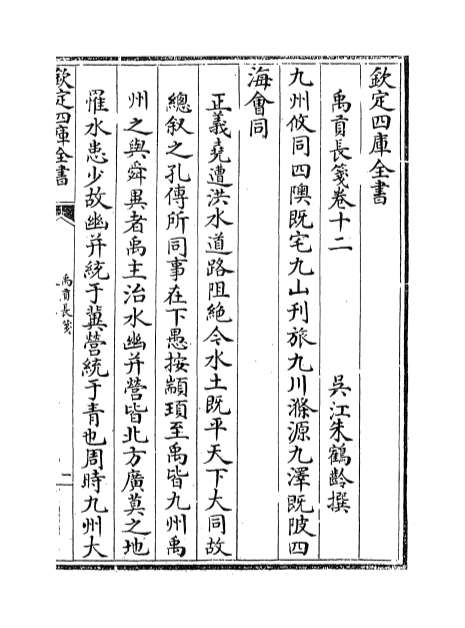 欽定四庫全書
禹貢長箋卷十二
吳江朱鶴齡撰
九州攸同四隩既宅九山刊旅九川滌源九澤既陂四
海會同
正義堯遭洪水道路阻絶今水土既平天下大同故
總叙之孔傳所同事在下愚按顓頊至禹皆九州禹
州之與舜異者禹主治水幽并營皆北方廣莫之地
罹水患少故幽并統于冀營統于青也周時九州大
欽定四庫全書
禹貢長箋
一